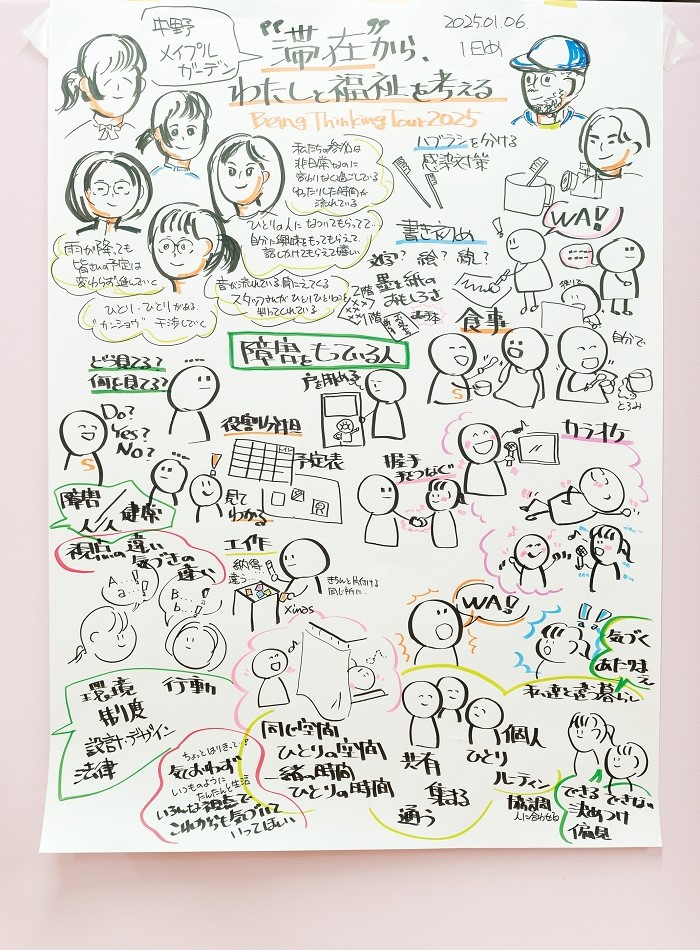 中野
メイプル
ガーデン
"滞在"から、
わたしと福祉を考える
Being Thinking Tour 2025
2025.01.06.
1日め
私たちの参加は
非日常なのに
変わりなく過ごしている
ゆったりした時間が
流れている
ひとりの人に なついてもらってて…
自分に興味をもってもらえて、
話しかけてもらえて嬉しい
雨が降っても
皆さんの予定は
変わらず進んでいく
ひとり・ひとりかかわる、
"カンショウ" 干渉していく
音が流れている 聞こえてくる
スタッフさんが ひとりひとりのことを
知ってくれている
ハブラシを分ける
感染対策
WA!
書き初め
墨と紙の
おもしろさ
2階
1階
食事
自分で
とろみ
障害をもっている人
どう見てる?
何を見てる?
戸を閉める
Do?
Yes?
No?
S
S
役割分担
予定表
見て
わかる
握手
手をつなぐ
カラオケ
障害/健康
人/人
視点の違い
気づきの
違い
A…!
a…!
B…!
b…!
工作
納得
違う…
きちんと片付ける
同じ所に…
Xmas
WA!
気づく
あたりまえ
私達と違う暮らし
環境
行動
制度
設計・デザイン
法律
ちょっとはりきって…?
気おわず
いつものように
たんたんと生活
いろんな視点で
これからも気づいて
いってほしい
同じ空間
ひとりの空間
一緒の時間
ひとりの時間
共有
集まる
通う
個人
ひとり
ルーティン
協調
人に合わせる
できる できない
決めつけ
偏見